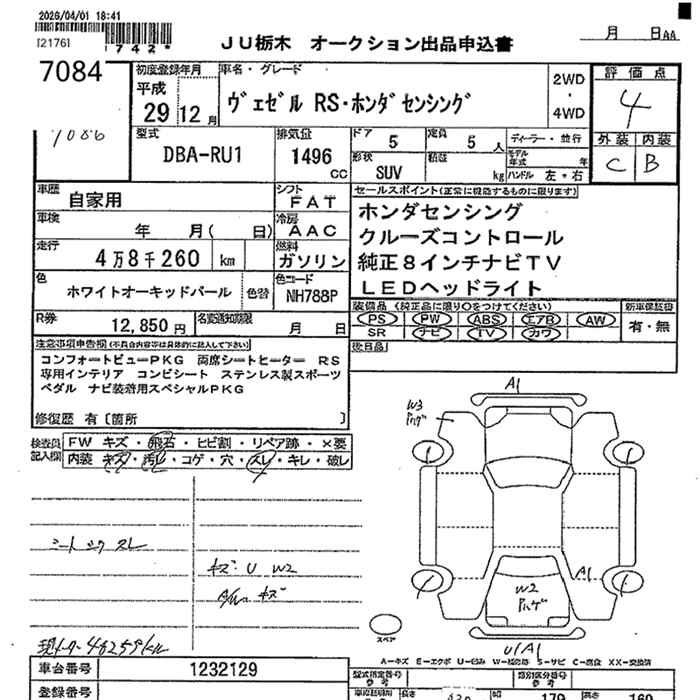 2026/04/01 18:41
I2176I
*742*
JU栃木 オークション出品申込書
月 日 AA
7084
1086
初度登録年月
平成
29 12月
車名・グレード
ヴェゼル RS・ホンダセンシング
2WD
・
4WD
評価点
4
外装 内装
C B
型式
DBA-RU1
排気量
1496
CC
ドア 5
定員 5 人
ディーラー・並行
形状 SUV
積載 kg
モデル年式 年
ハンドル 左・右
車歴 自家用
シフト FAT
セールスポイント(正常に機能するものに限ります)
ホンダセンシング
クルーズコントロール
純正8インチナビTV
LEDヘッドライト
車検 年 月( 日)
冷房 AAC
走行 4万8千260 km
燃料 ガソリン
色 ホワイトオーキッドパール 色替
色コード NH788P
R券 12,850円
名変通知期限 月 日
装備品 (純正品に限り○をつけてください)
PS PW ABS エアB AW
SR ナビ TV カワ
新車保証書
有・無
後日品
注意事項申告欄(不具合内容等は具体的に記入して下さい)
コンフォートビューPKG 両席シートヒーター RS
専用インテリア コンビシート ステンレス製スポーツ
ペダル ナビ装着用スペシャルPKG
修復歴 有〔箇所 〕
検査員記入欄
FW キズ・飛石・ヒビ割・リペア跡・×要
内装 キズ・汚レ・コゲ・穴・スレ・キレ・破レ
シート シワ スレ
キズ U W2
A/W キズ
現メーター 48259km
A1
W3
ハゲ
A1
W2
ハゲ
U/A1
スペア
A-キズ E-エクボ U-凹み W-補修跡 S-サビ C-腐食 XX-交換済
車台番号 1232129
登録番号
型式指定番号
参考
類別区分番号
参考
長さ
179
160